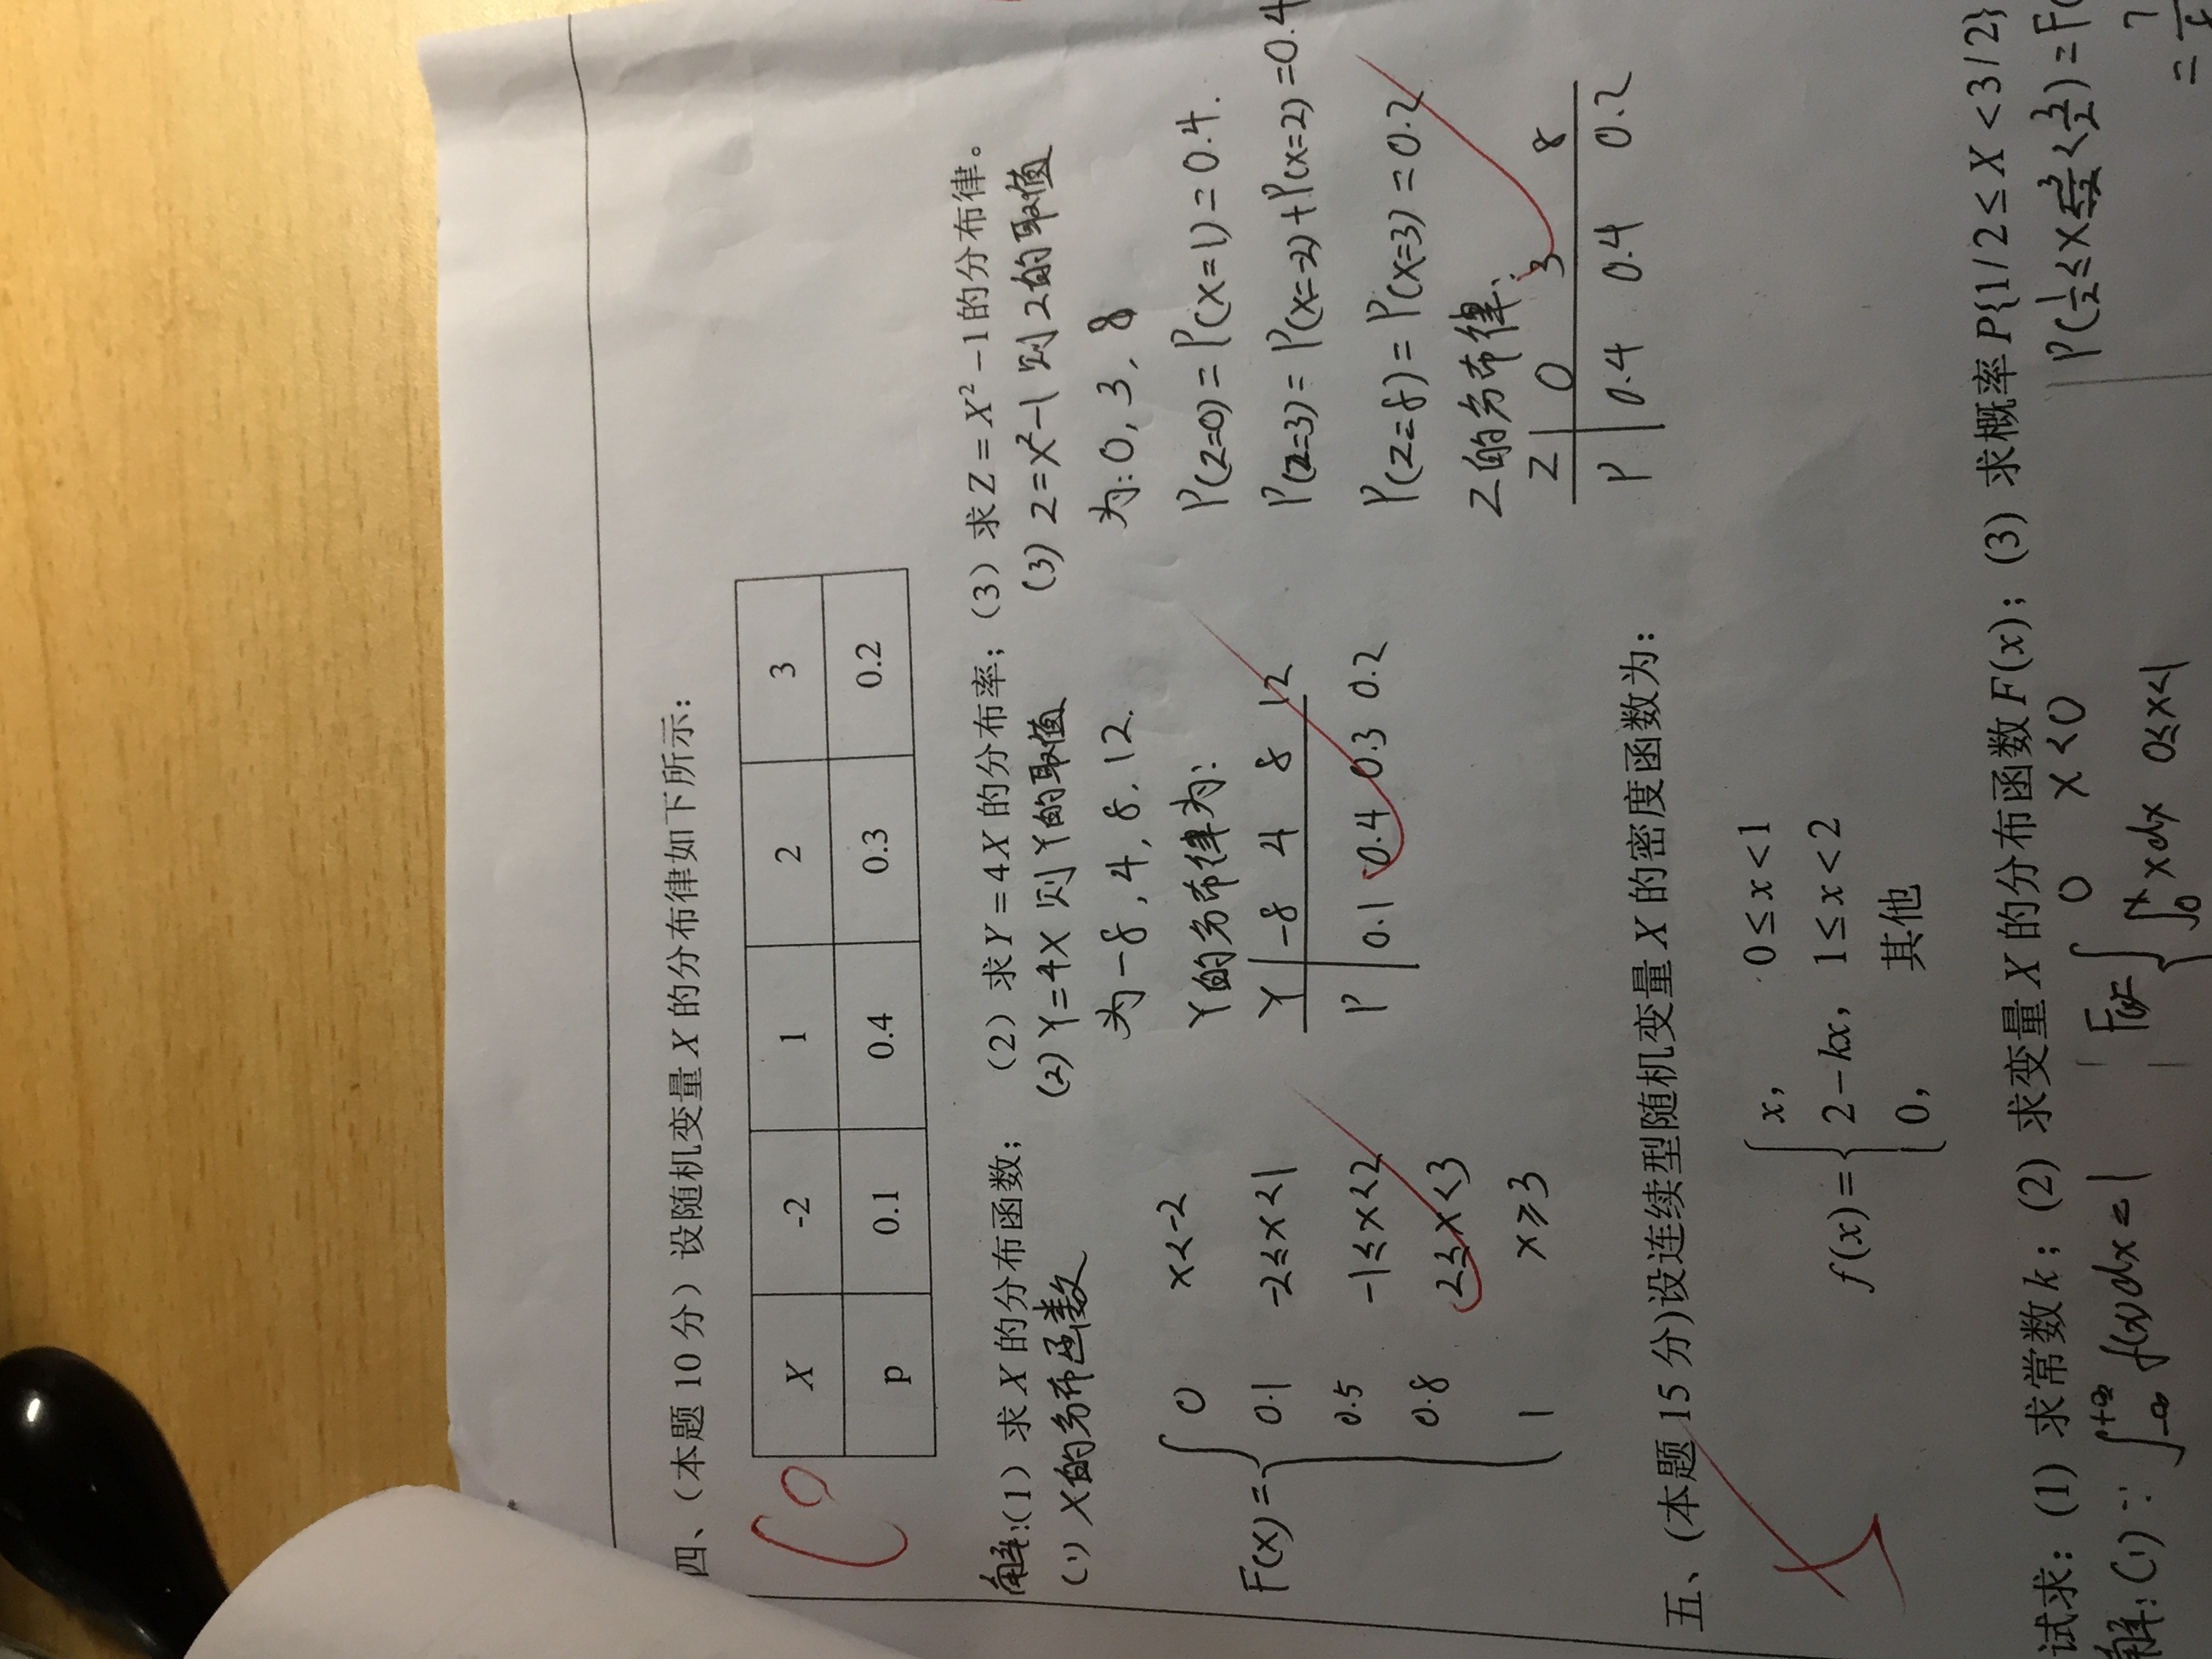 四、（本题 10 分）设随机变量 X 的分布律如下所示：
10
X -2 1 2 3
p 0.1 0.4 0.3 0.2
解:(1）求 X 的分布函数； （2）求 Y = 4X 的分布率；（3）求 Z = X² −1 的分布律。
(1) X的分布函数
F(x) = { 0 x<-2
0.1 -2≤x<1
0.5 -1≤x<2
0.8 2≤x<3
1 x≥3
(2) Y=4X 则Y的取值
为-8, 4, 8, 12.
Y的分布律为:
Y -8 4 8 12
P 0.1 0.4 0.3 0.2
(3) Z=X²-1 则Z的取值
为:0, 3, 8
P(Z=0) = P(X=1) = 0.4.
P(Z=3) = P(X=-2)+P(X=2) =0.4
P(Z=8) = P(X=3) = 0.2
Z的分布律:
Z 0 3 8
P 0.4 0.4 0.2
五、(本题 15 分)设连续型随机变量 X 的密度函数为：
f(x) = { x, 0 ≤ x < 1
2 − kx, 1 ≤ x < 2
0, 其他
试求：(1) 求常数 k；(2) 求变量 X 的分布函数 F(x)；(3) 求概率 P{1/2 ≤ X < 3/2}
解: (1) ∵ ∫_{-∞}^{+∞} f(x)dx = 1
F(x)= { 0 x<0
∫_0^x xdx 0≤x<1
P(1/2≤X<3/2) = F(
= 7